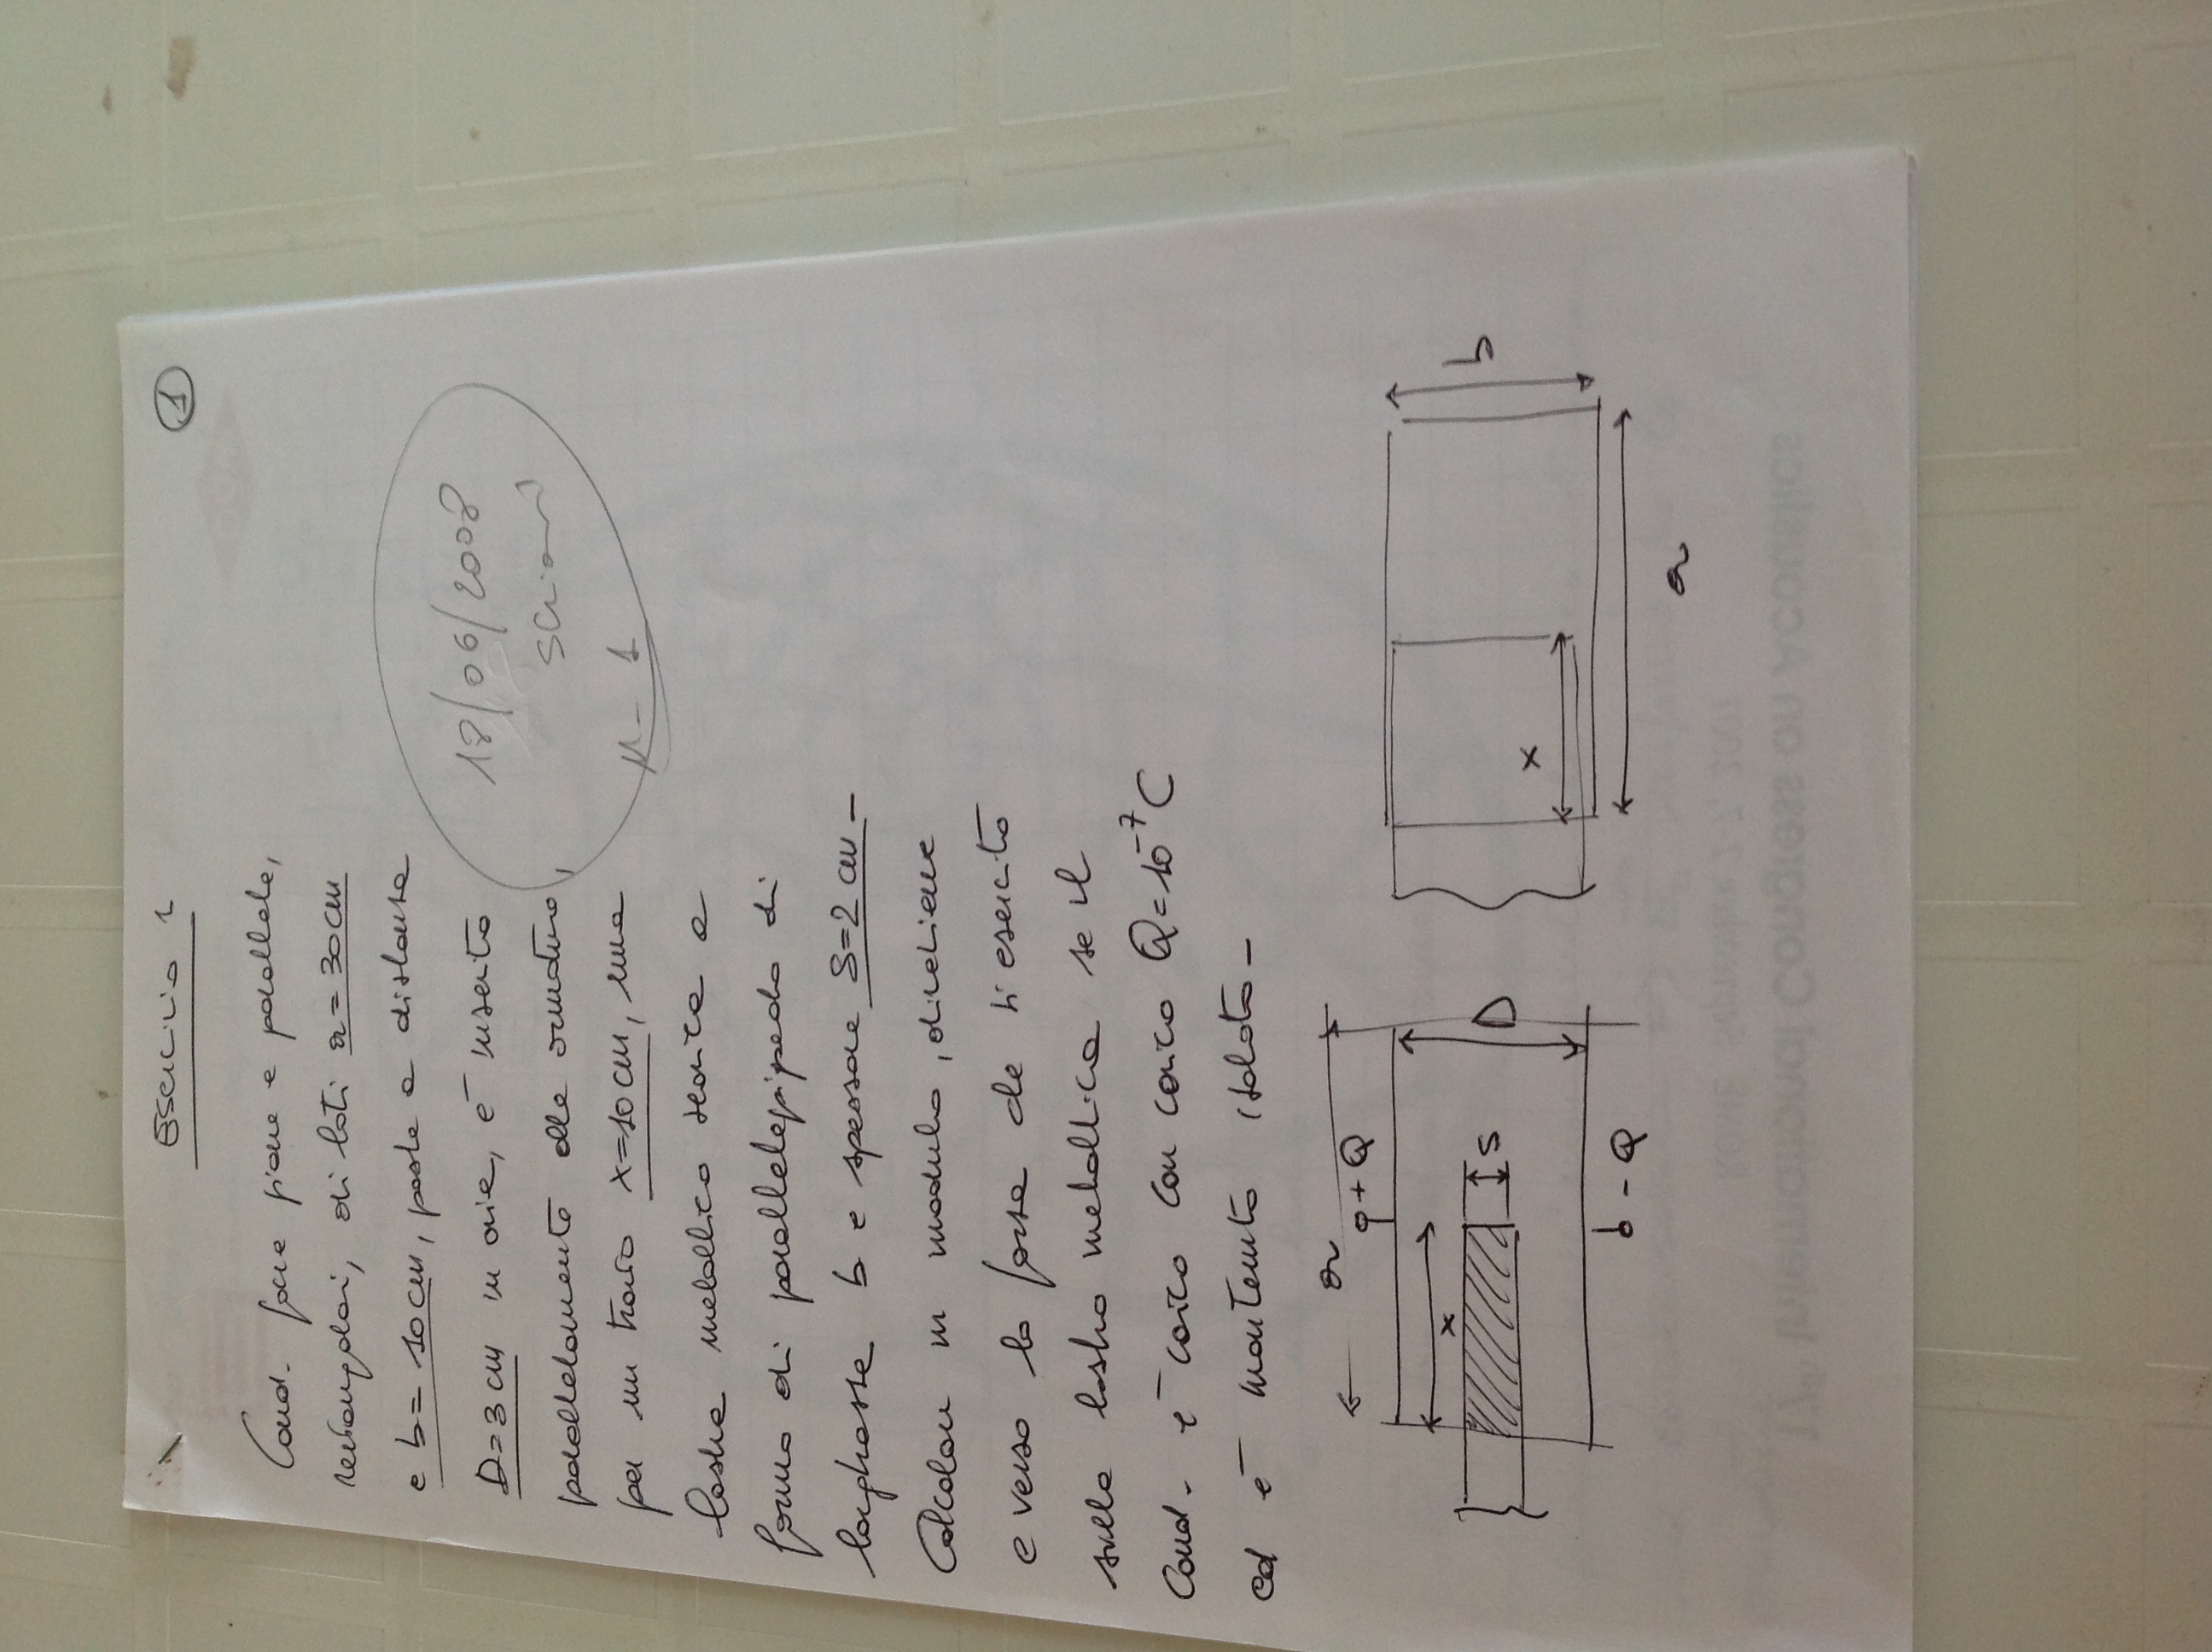 Esercizio 1
1
Cond. facce piane e parallele,
rettangolari, di lati a = 30 cm
e b = 10 cm, poste a distanza
D = 3 cm in aria, è inserita
parallelamente alle armature,
per un tratto x = 10 cm, una
lastra metallica scarica a
forma di parallelepipedo di
larghezza b e spessore S = 2 cm -
Calcolare in modulo, direzione
e verso la forza che si esercita
sulla lastra metallica se il
Cond. è carico con carica Q = 10⁻⁷ C
ed è mantenuto isolato -
18/06/2008
N - 1
a
+ Q
x
S
D
- Q
x
b
a
ROME September 2-7, 2001
17th International Congress on Acoustics